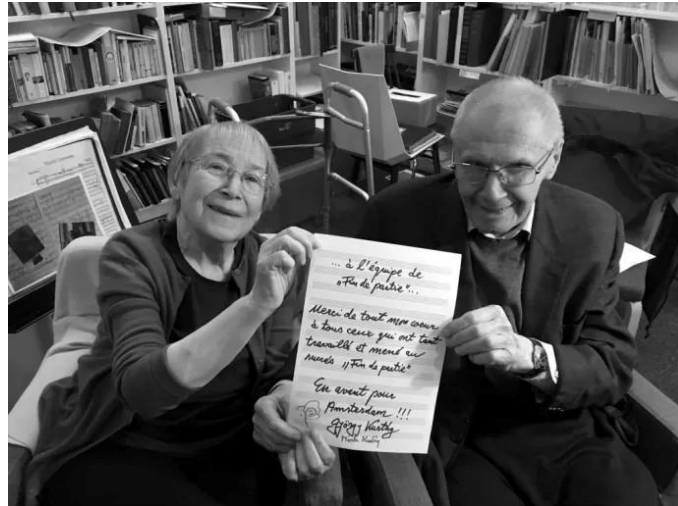 ... à l'équipe de
„Fin de partie"...
Merci de tout mon coeur
à tous ceux qui ont tant
travaillé et mené au
succés „Fin de partie"
En avant pour
Amsterdam !!!
György Kurtág
Márta Kurtág